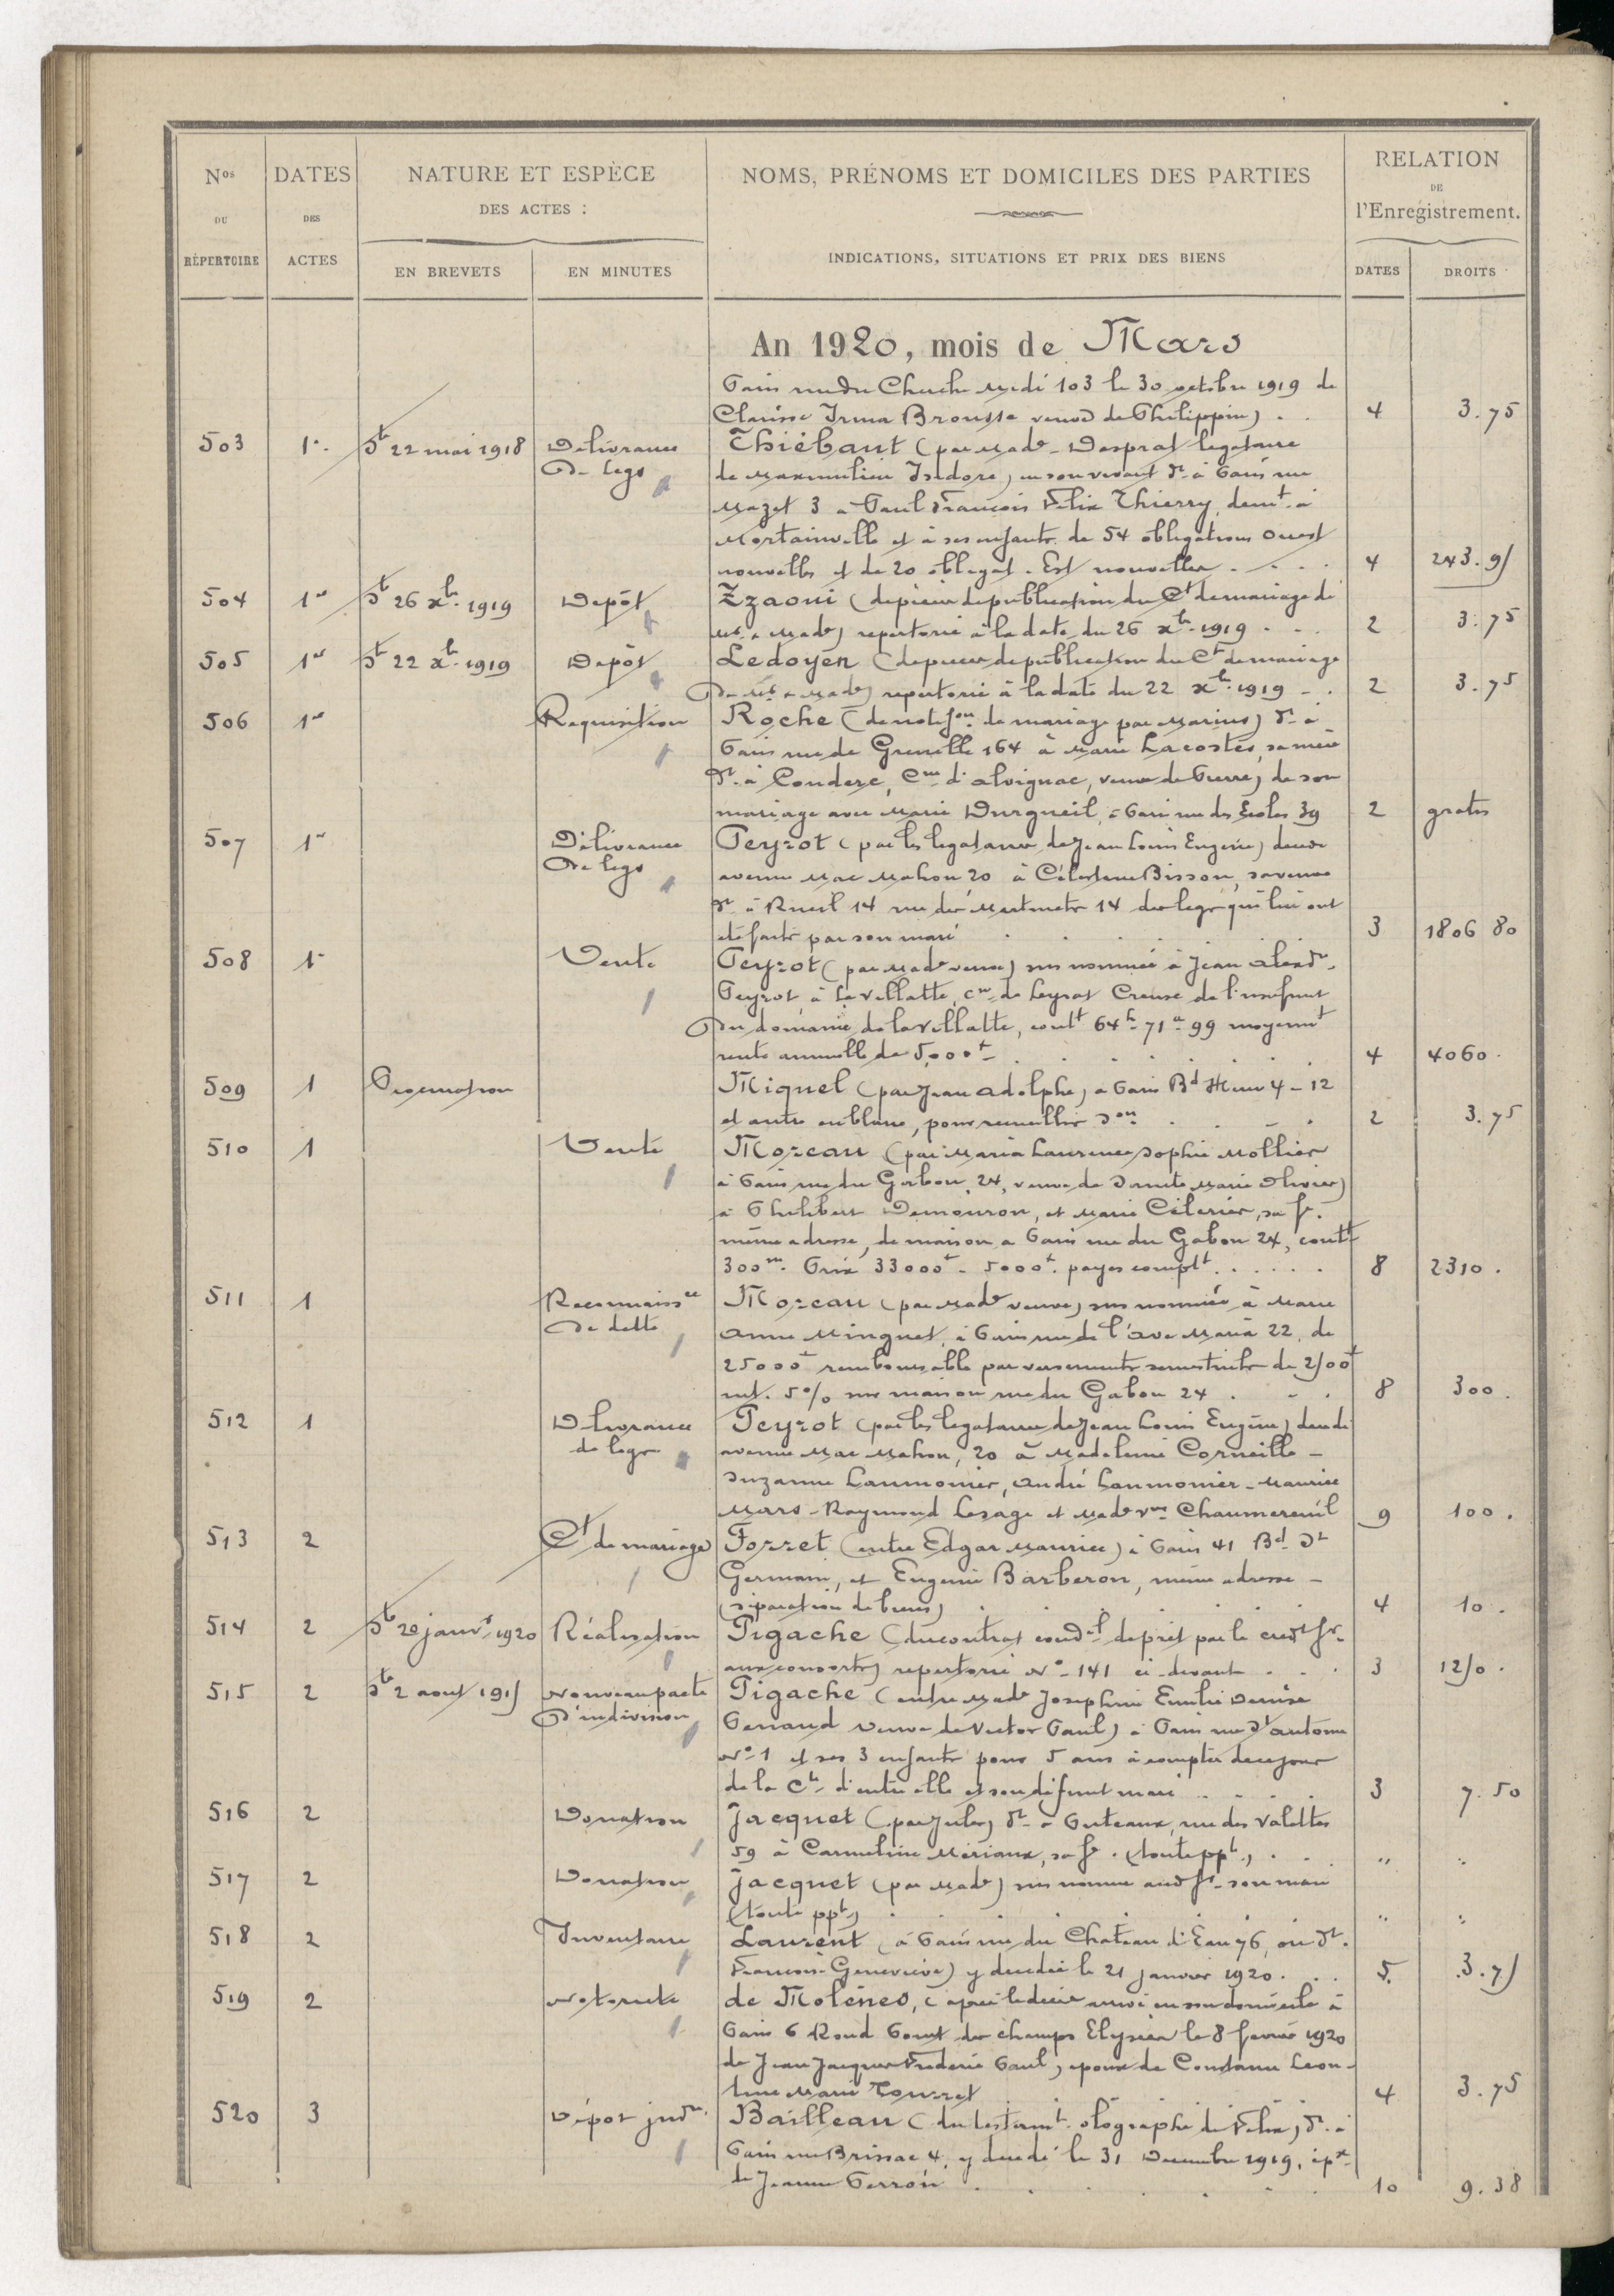 Nos DU RÉPERTOIRE
DATES DES ACTES
NATURE ET ESPÈCE DES ACTES :
EN BREVETS
EN MINUTES
NOMS, PRÉNOMS ET DOMICILES DES PARTIES
INDICATIONS, SITUATIONS ET PRIX DES BIENS
RELATION DE l'Enregistrement.
DATES
DROITS
An 1920, mois de Mars
Paris rue du Cherche Midi 103 le 30 octobre 1919 de
Clarisse Irma Brousse veuve de Philippin) . . 4 3.75
503 1er Dt 22 mai 1918 Délivrance Thiébaut (par Made Desprat légataire
de legs de Maximilien Isidore) en son vivant dt à Paris rue
Mazet 3 à Paul François Félix Thierry, demt à
Mortainville et à ses enfants de 54 obligations Ouest
nouvelles et de 20 obligat. Est nouvelles . . . 4 243.95
504 1er Dt 26 xbre 1919 Dépôt Zzaoui (de pièces de publication du Ct de mariage de
Mr & Made) répertorié à la date du 26 xbre 1919 . . . 2 3.75
505 1er Dt 22 xbre 1919 Dépôt Ledoyen (de pièces de publication du Ct de mariage
de Mr & Made) répertorié à la date du 22 xbre 1919 - . 2 3.75
506 1er Réquisition Roche (de notifon de mariage par Marius) dt à
Paris rue de Grenelle 164 à Marie Lacostes, sa mère
dt à Couderc, Cne d'Alvignac, veuve de Pierre) de son
mariage avec Marie Durgueil, à Paris rue des Ecoles 39 2 gratis
507 1er Délivrance Peyrot (par les légataires de Jean Louis Eugène) décdé
de legs avenue Mac Mahon 20 à Célestine Bisson, sa veuve
dt à Rueil 14 rue des Martinets 14 des legs qui lui ont
été faits par son mari . . . 3 1806 80
508 1er Vente Peyrot (par Made veuve) sus nommée à Jean Alexdre
Peyrot, à La Villatte, cne de Leyrat Creuse de l'usufruit
du domaine de la Villatte, contt 64h 71a 99 moyennt
rente annuelle de 5,000f . . . . . . 4 4060.
509 1 Procuration Miquel (par Jean Adolphe) à Paris Bd Henri 4 - 12
et autre en blanc, pour recueillir son . . . . 2 3.75
510 1 Vente Moreau (par Maria Laurence Sophie Mollier
à Paris rue du Gabon, 24, veuve de Donate Marie Olivier)
à Philibert Demouron, et Marie Célerier, sa fe.
même adresse, de maison à Paris rue du Gabon 24, contt
300m. Prix 33000f - 5000f. payés comptt . . . . . 8 2310.
511 1 Reconnaissce Moreau (par Made veuve) sus nommée à Marie
de dette Anne Minguet, à Paris rue de l'Ave Maria 22, de
25000f remboursable par versements semestriels de 2500f
int. 5% sur maison rue du Gabon 24 . - . 8 300.
512 1 Délivrance Peyrot (par les légataires de Jean Louis Eugène) décdé
de legs avenue Mac Mahon, 20 à Madeleine Corneille -
Suzanne Laumonier, André Laumonier - Maurice
Mars - Raymond Lesage et Made vve Chaumereuil 9 100.
513 2 Ct de mariage Forret (entre Edgar Maurice) à Paris 41 Bd St
Germain, et Eugénie Barberon, même adresse -
(séparation de biens) . . . . . 4 10.
514 2 Dt 20 janvr 1920 Réalisation Pigache (du contrat condel de prêt par le crédt fr.
aux consorts) répertorié No 141 ci-devant . . . 3 1250.
515 2 Dt 2 aout 1915 Nouveau pacte Pigache (entre Made Joséphine Emilie Denise
d'indivision Genaud veuve de Victor Paul) à Paris rue St Antoine
No 1 et ses 3 enfants pour 5 ans à compter de ce jour
de la Cté d'entre elle et son défunt mari . . . . 3 7.50
516 2 Donation Jacquet (par Jules) dt à Puteaux, rue des Valettes
59 à Carmeline Mériaux, sa fe. (toute ppté) . . . " "
517 2 Donation Jacquet (par Made) sus nommée aud sr son mari
(toute ppté) . . . . . " "
518 2 Inventaire Laurent (à Paris rue du Chateau d'Eau 76, où dt.
François Geneviève) y décédée le 21 janvier 1920 . . . 5. 3.75
519 2 Notoriété de Molènes, (après le décès arrivé en son domicile à
Paris 6 Rond Point des Champs Elysées le 8 février 1920
de Jean Jacques Frédéric Paul) époux de Constance Léon-
tine Marie Touret . . . 4 3.75
520 3 Dépot judre Bailleau (du testamt olographe de Félix) dt à
Paris rue Brissac 4, y décédé le 31 Décembre 1919, épx
de Jeanne Perron . . . . . . 10 9.38